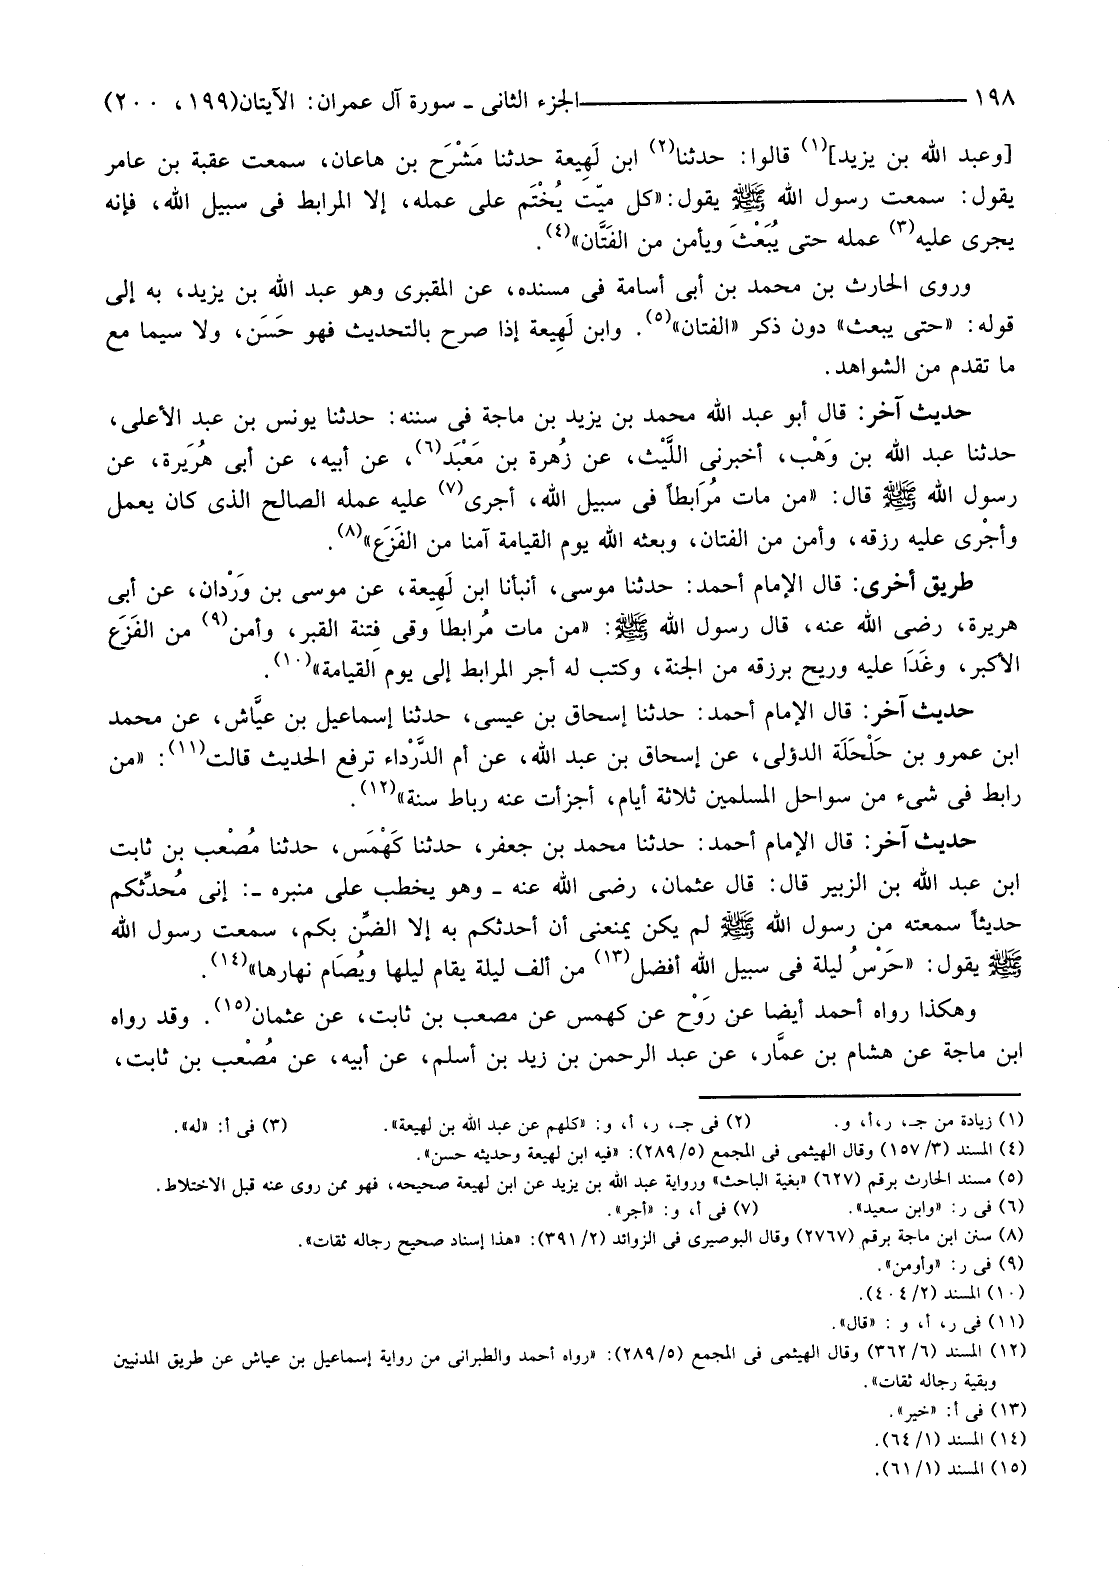 ١٩٨ ــــــــــــــــــــ الجزء الثانى ـ سورة آل عمران: الآيتان(١٩٩، ٢٠٠)
[وعبد الله بن يزيد](١) قالوا: حدثنا(٢) ابن لَهِيعة حدثنا مَشْرَح بن هاعان، سمعت عقبة بن عامر
يقول: سمعت رسول الله ﷺ يقول:«كل ميّت يُخْتَم على عمله، إلا المرابط فى سبيل الله، فإنه
يجرى عليه(٣) عمله حتى يُبَعْثَ ويأمن من الفَتَّان»(٤).
وروى الحارث بن محمد بن أبى أسامة فى مسنده، عن المقبرى وهو عبد الله بن يزيد، به إلى
قوله: «حتى يبعث» دون ذكر «الفتان»(٥). وابن لَهِيعة إذا صرح بالتحديث فهو حَسَن، ولا سيما مع
ما تقدم من الشواهد.
حديث آخر: قال أبو عبد الله محمد بن يزيد بن ماجة فى سننه: حدثنا يونس بن عبد الأعلى،
حدثنا عبد الله بن وَهْب، أخبرنى اللَّيْث، عن زُهرة بن مَعْبَد(٦)، عن أبيه، عن أبى هُرَيرة، عن
رسول الله ﷺ قال: «من مات مُرَابطاً فى سبيل الله، أجرى(٧) عليه عمله الصالح الذى كان يعمل
وأجْرى عليه رزقه، وأمن من الفتان، وبعثه الله يوم القيامة آمنا من الفَزَع»(٨).
طريق أخرى: قال الإمام أحمد: حدثنا موسى، أنبأنا ابن لَهِيعة، عن موسى بن وَرْدان، عن أبى
هريرة، رضى الله عنه، قال رسول الله ﷺ: «من مات مُرابطا وقى فِتنة القبر، وأمن(٩) من الفَزَع
الأكبر، وغَدَا عليه وريح برزقه من الجنة، وكتب له أجر المرابط إلى يوم القيامة»(١٠).
حديث آخر: قال الإمام أحمد: حدثنا إسحاق بن عيسى، حدثنا إسماعيل بن عيَّاش، عن محمد
ابن عمرو بن حَلْحَلَة الدؤلى، عن إسحاق بن عبد الله، عن أم الدَّرْداء ترفع الحديث قالت(١١): «من
رابط فى شىء من سواحل المسلمين ثلاثة أيام، أجزأت عنه رباط سنة»(١٢).
حديث آخر: قال الإمام أحمد: حدثنا محمد بن جعفر، حدثنا كَهْمَس، حدثنا مُصْعب بن ثابت
ابن عبد الله بن الزبير قال: قال عثمان، رضى الله عنه ـ وهو يخطب على منبره ـ: إنى مُحدِّثكم
حديثاً سمعته من رسول الله ﷺ لم يكن يمنعنى أن أحدثكم به إلا الضِّن بكم، سمعت رسول الله
ﷺ يقول: «حَرْسُ ليلة فى سبيل الله أفضل(١٣) من ألف ليلة يقام ليلها ويُصَام نهارها»(١٤).
وهكذا رواه أحمد أيضا عن رَوْح عن كهمس عن مصعب بن ثابت، عن عثمان(١٥). وقد رواه
ابن ماجة عن هشام بن عمَّار، عن عبد الرحمن بن زيد بن أسلم، عن أبيه، عن مُصْعب بن ثابت،
(١) زيادة من جـ، ر،أ، و. (٢) فى جـ، ر، أ، و: «كلهم عن عبد الله بن لهيعة». (٣) فى أ: «له».
(٤) المسند (٣/ ١٥٧) وقال الهيثمى فى المجمع (٥/ ٢٨٩): «فيه ابن لهيعة وحديثه حسن».
(٥) مسند الحارث برقم (٦٢٧) «بغية الباحث» ورواية عبد الله بن يزيد عن ابن لهيعة صحيحه، فهو ممن روى عنه قبل الاختلاط.
(٦) فى ر: «وابن سعيد». (٧) فى أ، و: «أجر».
(٨) سنن ابن ماجة برقم (٢٧٦٧) وقال البوصيرى فى الزوائد (٢/ ٣٩١): «هذا إسناد صحيح رجاله ثقات».
(٩) فى ر: «وأومن».
(١٠) المسند (٢/ ٤٠٤).
(١١) فى ر، أ، و : «قال».
(١٢) المسند (٦/ ٣٦٢) وقال الهيثمى فى المجمع (٥/ ٢٨٩): «رواه أحمد والطبرانى من رواية إسماعيل بن عياش عن طريق المدنيين
وبقية رجاله ثقات».
(١٣) فى أ: «خير».
(١٤) المسند (١/ ٦٤).
(١٥) المسند (١/ ٦١).